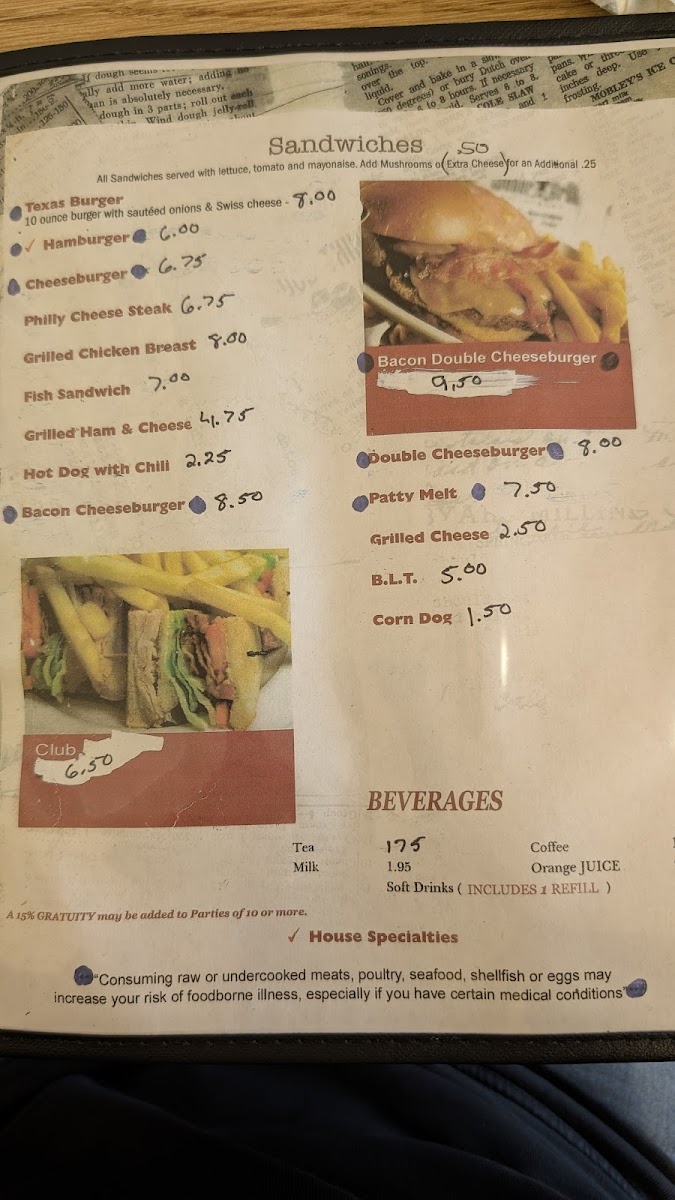 dough seems
lly add more water; adding no
an is absolutely necessary.
dough in 3 parts; roll out each
Wind dough jelly-roll
over the top.
liquid.
Cover and bake in a
degrees) or bury Dutch oven
to 8 hours. If necessary
Serves 6 to 8.
COLE SLAW
and 1
cake or
inches deep. Use
frosting.
MOBLEY'S ICE C
Sandwiches .50
All Sandwiches served with lettuce, tomato and mayonaise. Add Mushrooms or (Extra Cheese) for an Additional .25
Texas Burger
10 ounce burger with sautéed onions & Swiss cheese - 8.00
✓ Hamburger 6.00
Cheeseburger 6.75
Philly Cheese Steak 6.75
Grilled Chicken Breast 8.00
Fish Sandwich 7.00
Grilled Ham & Cheese 4.75
Hot Dog with Chili 2.25
Bacon Cheeseburger 8.50
Club
6.50
Bacon Double Cheeseburger
9,50
Double Cheeseburger 8.00
Patty Melt 7.50
Grilled Cheese 2.50
B.L.T. 5.00
Corn Dog 1.50
BEVERAGES
Tea 175 Coffee
Milk 1.95 Orange JUICE
Soft Drinks ( INCLUDES 1 REFILL )
A 15% GRATUITY may be added to Parties of 10 or more.
✓ House Specialties
"Consuming raw or undercooked meats, poultry, seafood, shellfish or eggs may
increase your risk of foodborne illness, especially if you have certain medical conditions"